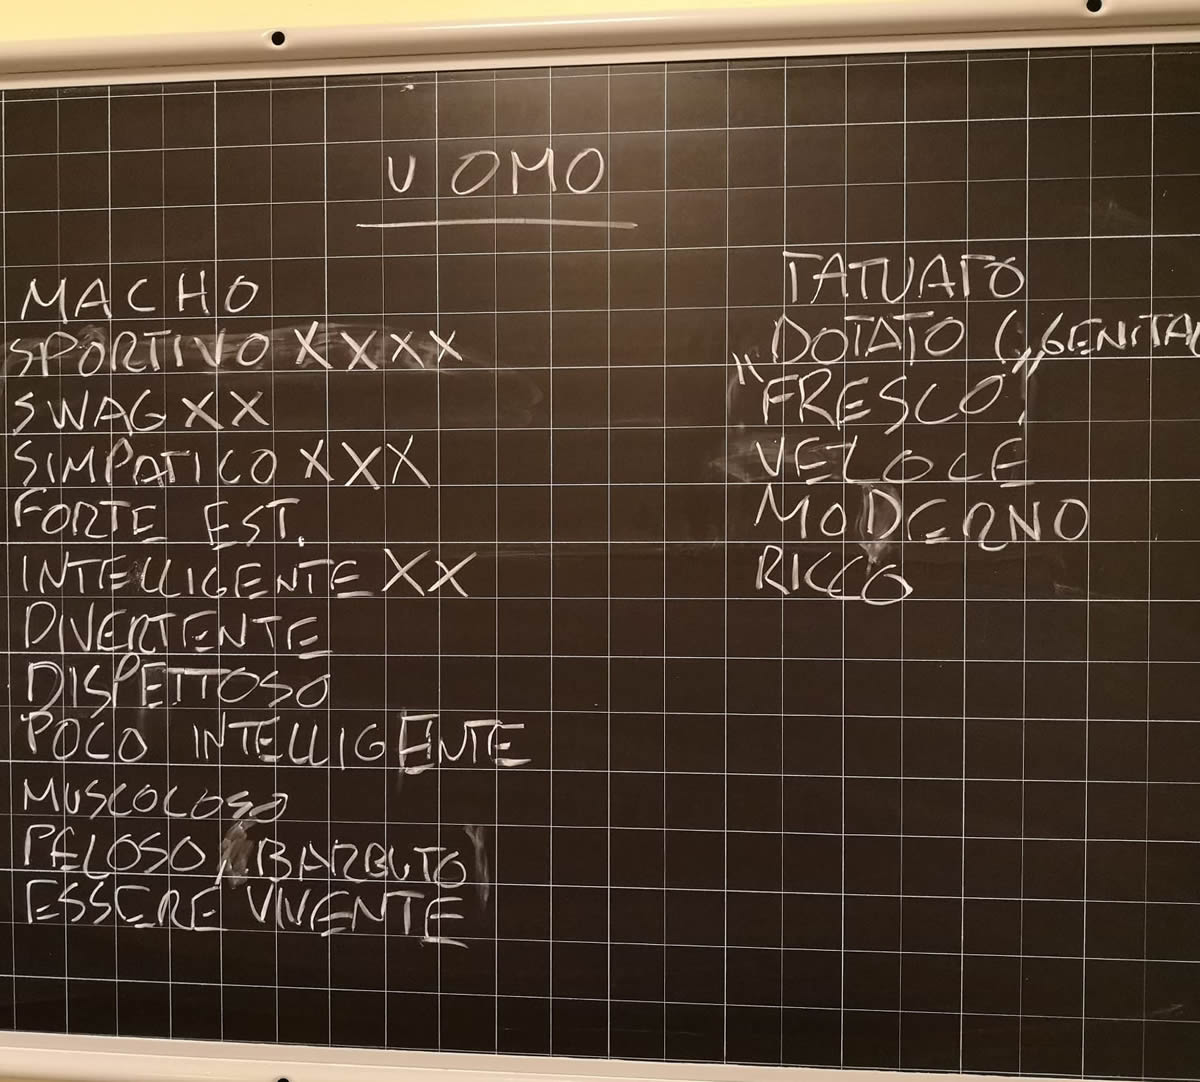 UOMO
MACHO
SPORTIVO XXXX
SWAG XX
SIMPATICO XXX
FORTE EST.
INTELLIGENTE XX
DIVERTENTE
DISPETTOSO
POCO INTELLIGENTE
MUSCOLOSO
PELOSO / BARBUTO
ESSERE VIVENTE
TATUATO
DOTATO (GENITAL
"FRESCO"
VELOCE
MODERNO
RICCO